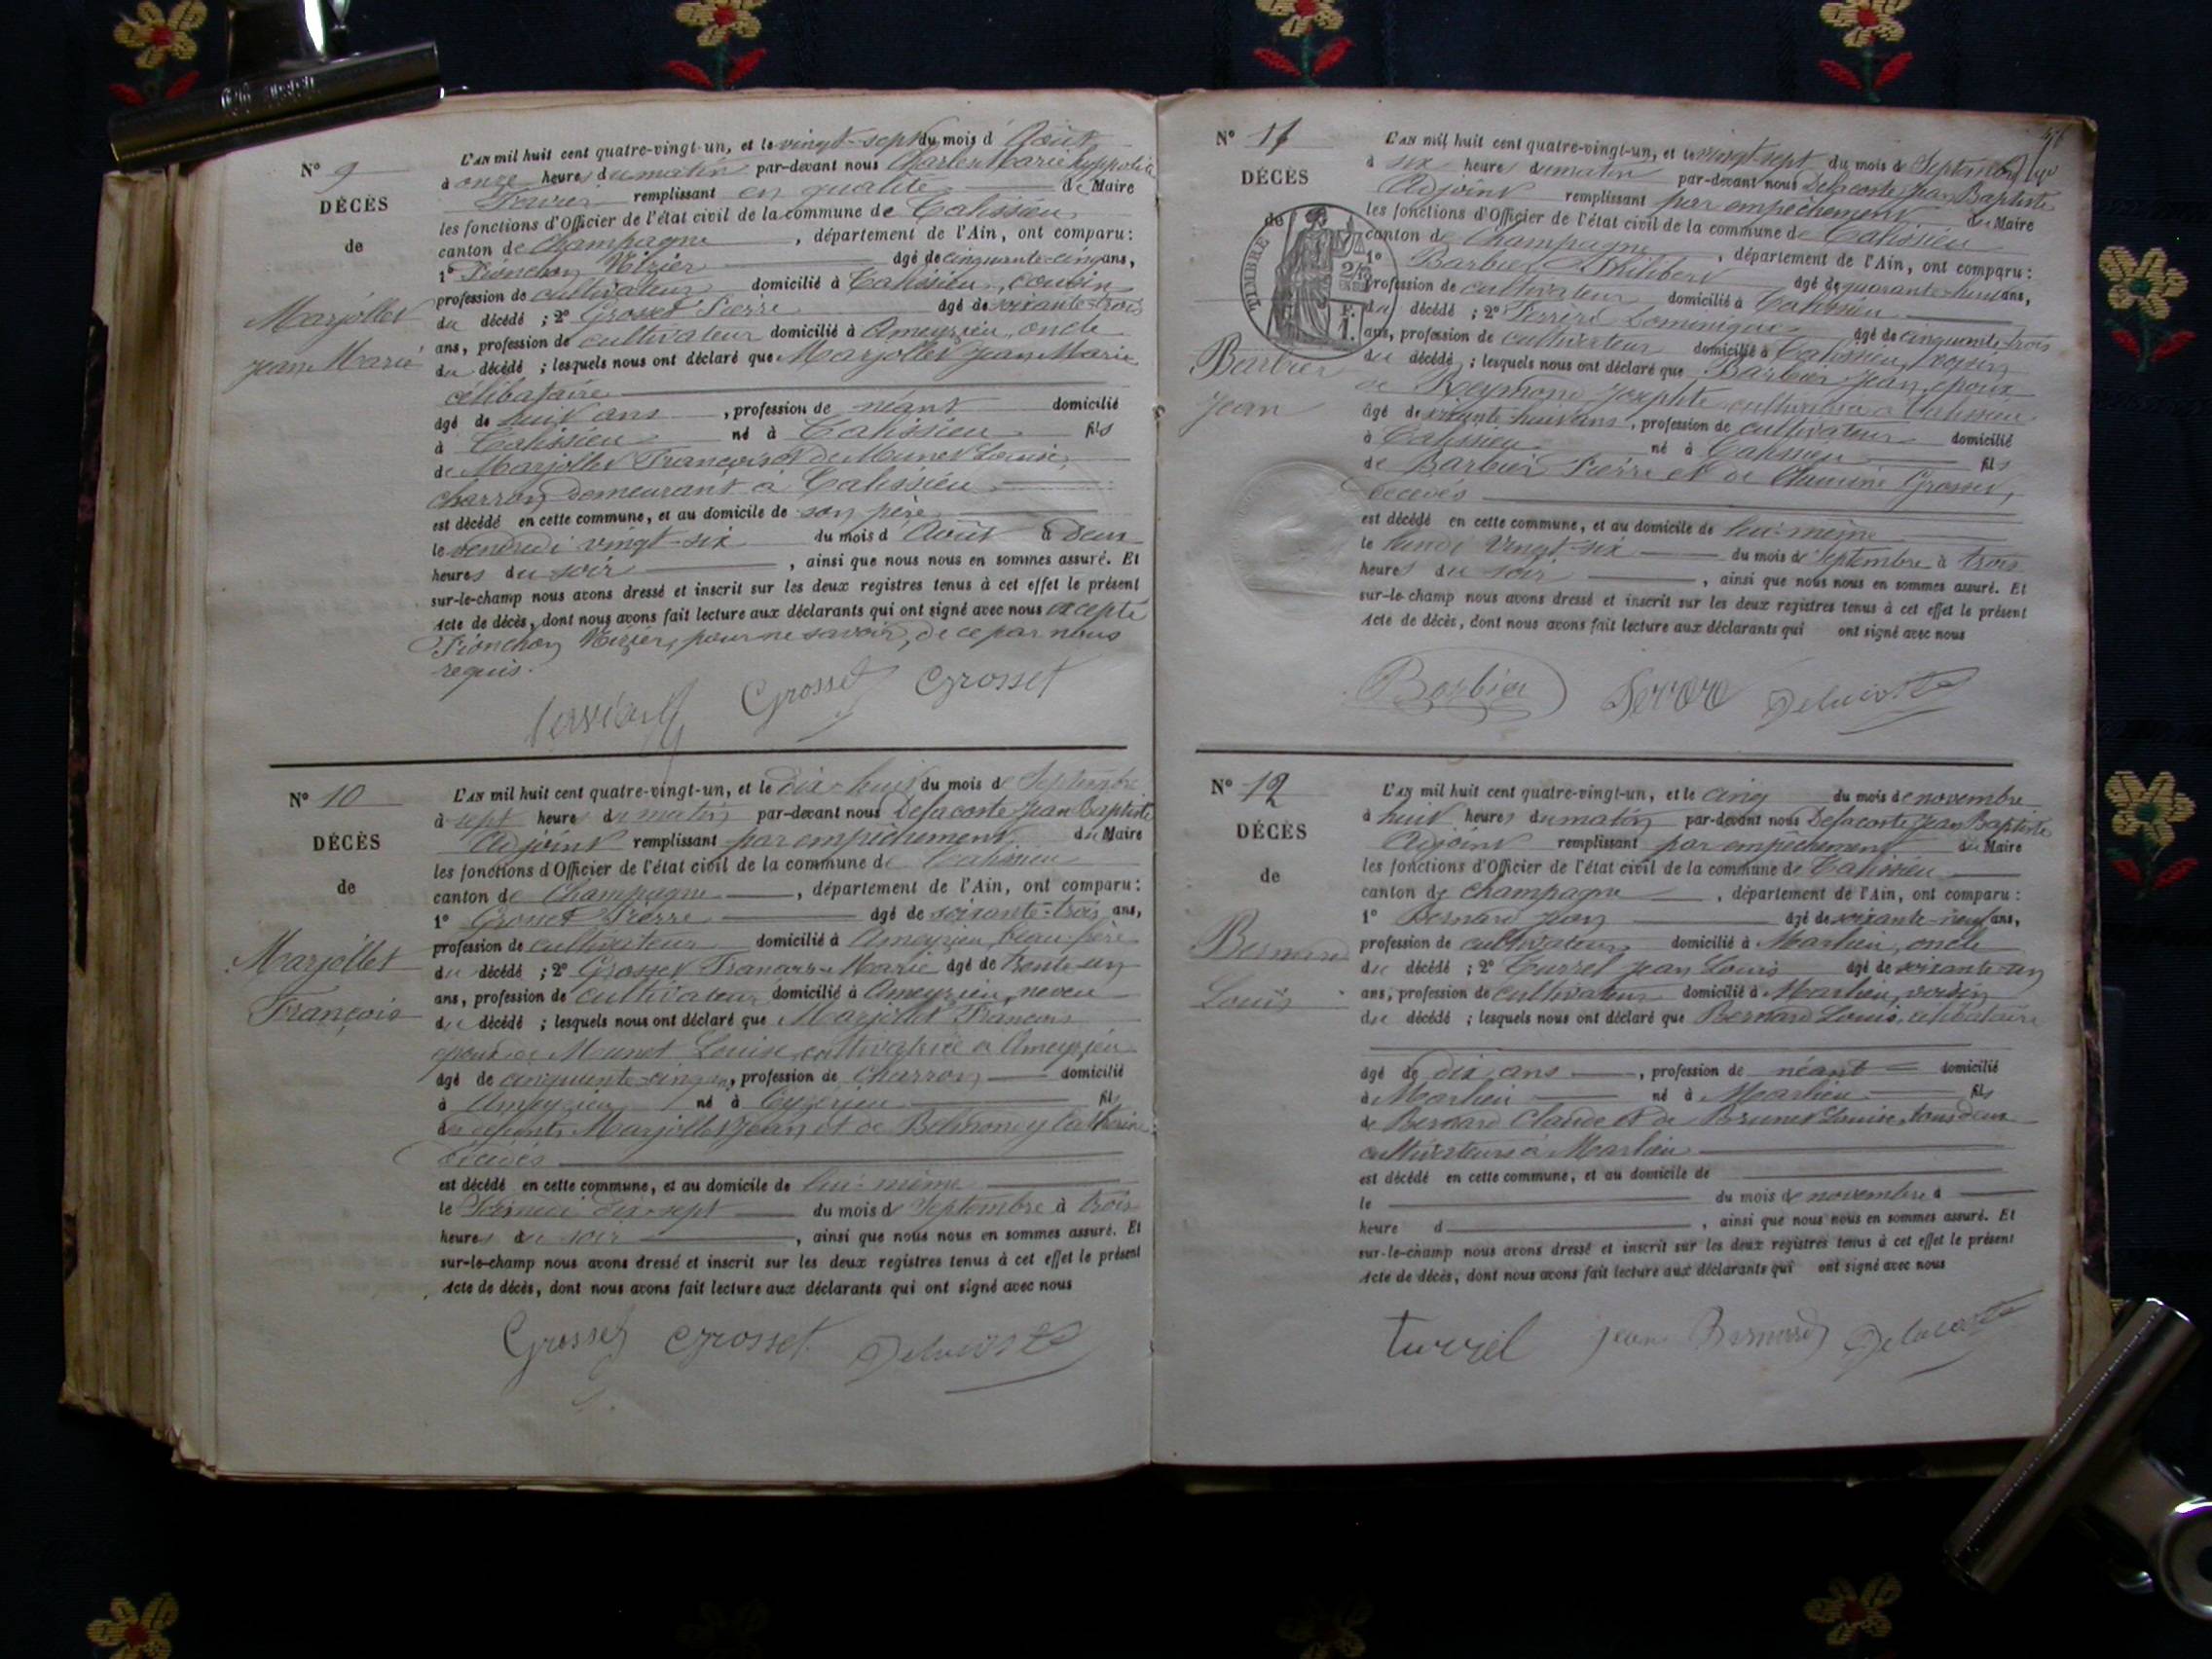 N° 9
DÉCÈS
de
Marjollet
Jean Marie
L'AN mil huit cent quatre-vingt-un, et le vingt-sept du mois d'Août
à onze heures du matin par-devant nous Charles Marie hyppolite
remplissant en qualité de Maire
les fonctions d'Officier de l'état civil de la commune de Talissieu
canton de Champagne, département de l'Ain, ont comparu:
1° Pionchon Vézier âgé de cinquante-cinq ans,
profession de cultivateur domicilié à Talissieu, cousin
du décédé; 2° Grosset Pierre âgé de soixante-trois
ans, profession de cultivateur domicilié à Ameyzieu, oncle
du décédé; lesquels nous ont déclaré que Marjollet Jean Marie
célibataire
âgé de huit ans, profession de néant domicilié
à Talissieu né à Talissieu fils
de Marjollet François et de Munet Louise,
charron demeurant à Talissieu
est décédé en cette commune, et au domicile de son père
le vendredi vingt-six du mois d'Août à deux
heures du soir, ainsi que nous nous en sommes assuré. Et
sur-le-champ nous avons dressé et inscrit sur les deux registres tenus à cet effet le présent
Acte de décès, dont nous avons fait lecture aux déclarants qui ont signé avec nous excepté
Pionchon Vézier, pour ne savoir, de ce par nous
requis.
Grosset Grosset
N° 10
DÉCÈS
de
Marjollet
François
L'AN mil huit cent quatre-vingt-un, et le dix-huit du mois de Septembre
à sept heures du matin par-devant nous Delacoste Jean Baptiste
Adjoint remplissant par empêchement du Maire
les fonctions d'Officier de l'état civil de la commune de Talissieu
canton de Champagne, département de l'Ain, ont comparu:
1° Grosset Pierre âgé de soixante-trois ans,
profession de cultivateur domicilié à Ameyzieu, beau-père
du décédé; 2° Grosset François-Marie âgé de trente-un
ans, profession de cultivateur domicilié à Ameyzieu, neveu
du décédé; lesquels nous ont déclaré que Marjollet François
époux de Munet Louise cultivatrice à Ameyzieu
âgé de cinquante-cinq ans, profession de Charron domicilié
à Ameyzieu né à Ceyzerieu fils
des défunts Marjollet Jean et de Belmondy Catherine
décédés
est décédé en cette commune, et au domicile de lui-même
le Samedi dix-sept du mois de Septembre à trois
heures du soir, ainsi que nous nous en sommes assuré. Et
sur-le-champ nous avons dressé et inscrit sur les deux registres tenus à cet effet le présent
Acte de décès, dont nous avons fait lecture aux déclarants qui ont signé avec nous
Grosset Grosset Delacoste
N° 11
DÉCÈS
de
TIMBRE
Barbier
Jean
L'AN mil huit cent quatre-vingt-un, et le vingt-sept du mois de Septembre
à six heures du matin par-devant nous Delacoste Jean Baptiste
Adjoint remplissant par empêchement du Maire
les fonctions d'Officier de l'état civil de la commune de Talissieu
canton de Champagne, département de l'Ain, ont comparu:
1° Barbier Philibert âgé de quarante-huit ans,
profession de cultivateur domicilié à Talissieu
du décédé; 2° Dominique âgé de cinquante-trois
ans, profession de cultivateur domicilié à Talissieu, voisin
du décédé; lesquels nous ont déclaré que Barbier Jean, époux
de Reymond Josephte cultivatrice à Talissieu
âgé de soixante-huit ans, profession de cultivateur domicilié
à Talissieu né à Talissieu fils
de Barbier Pierre et de Claudine Grosset,
décédés
est décédé en cette commune, et au domicile de lui-même
le lundi vingt-six du mois de Septembre à trois
heures du soir, ainsi que nous nous en sommes assuré. Et
sur-le-champ nous avons dressé et inscrit sur les deux registres tenus à cet effet le présent
Acte de décès, dont nous avons fait lecture aux déclarants qui ont signé avec nous
Barbier Delacoste
N° 12
DÉCÈS
de
Bernard
Louis
L'AN mil huit cent quatre-vingt-un, et le cinq du mois de novembre
à huit heures du matin par-devant nous Delacoste Jean Baptiste
Adjoint remplissant par empêchement du Maire
les fonctions d'Officier de l'état civil de la commune de Talissieu
canton de Champagne, département de l'Ain, ont comparu:
1° Bernard Jean âgé de soixante-neuf ans,
profession de cultivateur domicilié à Marlieu, oncle
du décédé; 2° Turrel Jean Louis âgé de soixante-un
ans, profession de cultivateur domicilié à Marlieu, voisin
du décédé; lesquels nous ont déclaré que Bernard Louis, célibataire
âgé de dix ans, profession de néant domicilié
à Marlieu né à Marlieu fils
de Bernard Claude et de Brunet Louise, tous deux
cultivateurs à Marlieu
est décédé en cette commune, et au domicile de
le du mois de novembre à
heure d, ainsi que nous nous en sommes assuré. Et
sur-le-champ nous avons dressé et inscrit sur les deux registres tenus à cet effet le présent
Acte de décès, dont nous avons fait lecture aux déclarants qui ont signé avec nous
turrel jean Bernard Delacoste